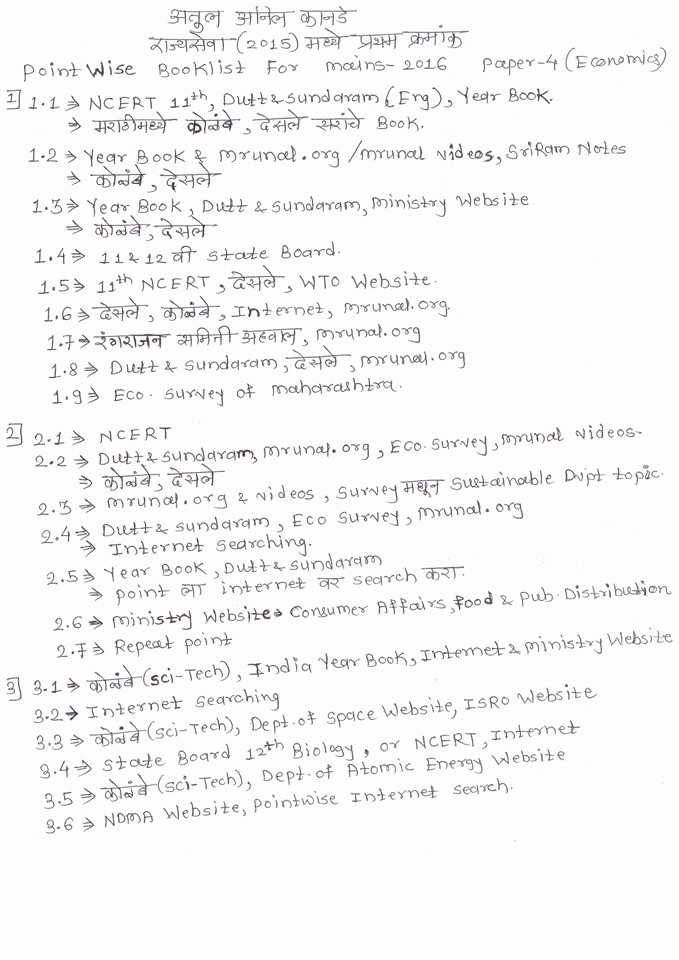 अतुल अनिल कानडे
राज्यसेवा (2015) मध्ये प्रथम क्रमांक
Point Wise Booklist For mains-2016 Paper-4 (Economics)
1] 1.1 ⇒ NCERT 11th, Dutt & Sundaram (Eng), Year Book.
⇒ मराठीमध्ये कोळंबे, देसले सरांचे Book.
1.2 → Year Book & mrunal.org /mrunal videos, SriRam Notes
⇒ कोळंबे, देसले
1.3 ⇒ Year Book, Dutt & Sundaram, Ministry Website
⇒ कोळंबे, देसले
1.4 ⇒ 11 & 12 वी State Board.
1.5 ⇒ 11th NCERT, देसले, WTO Website.
1.6 ⇒ देसले, कोळंबे, Internet, mrunal.org.
1.7 → रंगराजन समिती अहवाल, mrunal.org
1.8 ⇒ Dutt & Sundaram, देसले, mrunal.org
1.9 ⇒ Eco. Survey of maharashtra.
2] 2.1 ⇒ NCERT
2.2 ⇒ Dutt & Sundaram, mrunal.org, Eco. Survey, mrunal videos-
⇒ कोळंबे, देसले
2.3 ⇒ mrunal.org & videos, Survey मधून Sustainable Dvpt topic.
2.4 ⇒ Dutt & Sundaram, Eco Survey, mrunal.org
⇒ Internet Searching.
2.5 ⇒ Year Book, Dutt & Sundaram
⇒ point ला internet वर search करा.
2.6 ⇒ Ministry Website → Consumer Affairs, food & Pub. Distribution
2.7 ⇒ Repeat point
3] 3.1 ⇒ कोळंबे (sci-Tech), India Year Book, Internet & ministry Website
3.2 → Internet Searching
3.3 ⇒ कोळंबे (sci-Tech), Dept. of Space Website, ISRO Website
3.4 ⇒ State Board 12th Biology, or NCERT, Internet
3.5 ⇒ कोळंबे (sci-Tech), Dept. of Atomic Energy Website
3.6 ⇒ NDMA Website, Pointwise Internet Search.